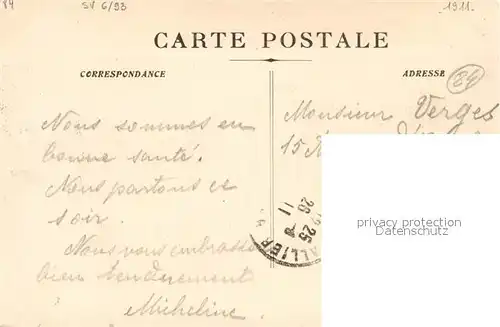 84 SV 6/93 1911.
CARTE POSTALE
CORRESPONDANCE
ADRESSE
84
Monsieur Verges
15
Nous sommes en
bonne santé.
Nous partons ce
soir.
Nous vous embrassons
bien tendrement
Micheline.
19 25
28 - 8
11
ALLIER
privacy protection
Datenschutz